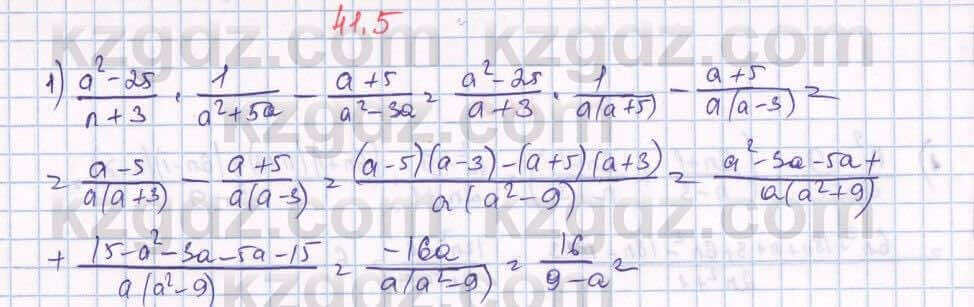 41.5
1) (a² - 25)/(n + 3) · 1/(a² + 5a) - (a + 5)/(a² - 3a) = (a² - 25)/(a + 3) · 1/(a(a + 5)) - (a + 5)/(a(a - 3)) =
= (a - 5)/(a(a + 3)) - (a + 5)/(a(a - 3)) = ((a - 5)(a - 3) - (a + 5)(a + 3))/(a(a² - 9)) = (a² - 3a - 5a +)/(a(a² + 9))
+ (15 - a² - 3a - 5a - 15)/(a(a² - 9)) = (-16a)/(a(a² - 9)) = 16/(9 - a²)
kzgdz.com
kzgdz.com
kzgdz.com
kzgdz.com